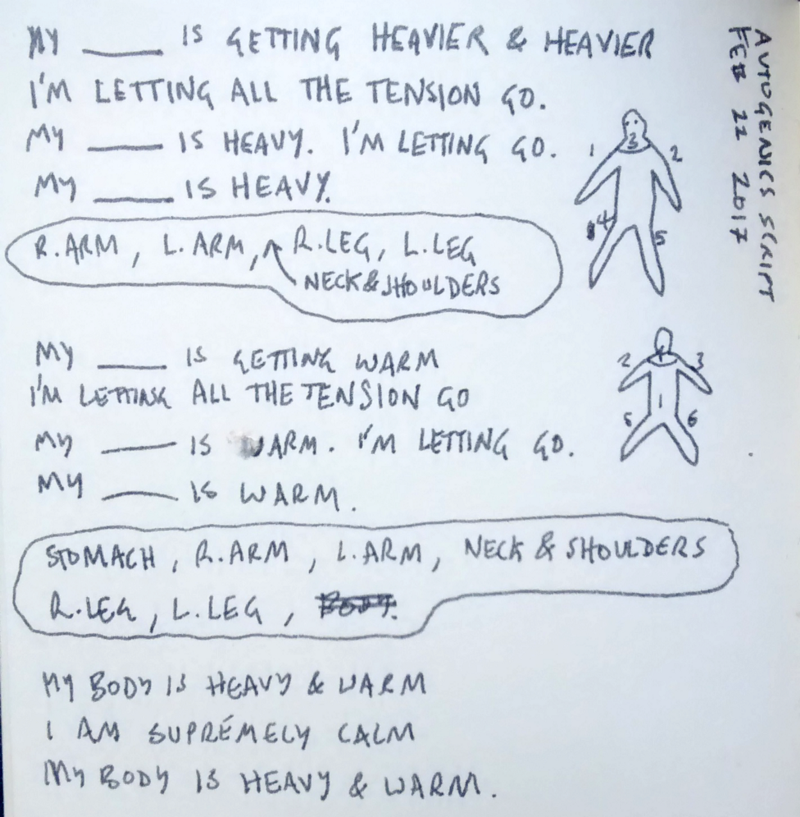 MY ____ IS GETTING HEAVIER & HEAVIER
I'M LETTING ALL THE TENSION GO.
MY ____ IS HEAVY. I'M LETTING GO.
MY ____ IS HEAVY.
R.ARM, L.ARM, R.LEG, L.LEG
NECK & SHOULDERS
1 2
3
4 5
AUTOGENICS SCRIPT
FEB 22 2017
MY ____ IS GETTING WARM
I'M LETTING ALL THE TENSION GO
MY ____ IS WARM. I'M LETTING GO.
MY ____ IS WARM.
2 3
1
6
STOMACH, R.ARM, L.ARM, NECK & SHOULDERS
R.LEG, L.LEG, BODY.
MY BODY IS HEAVY & WARM
I AM SUPRÉMELY CALM
MY BODY IS HEAVY & WARM.